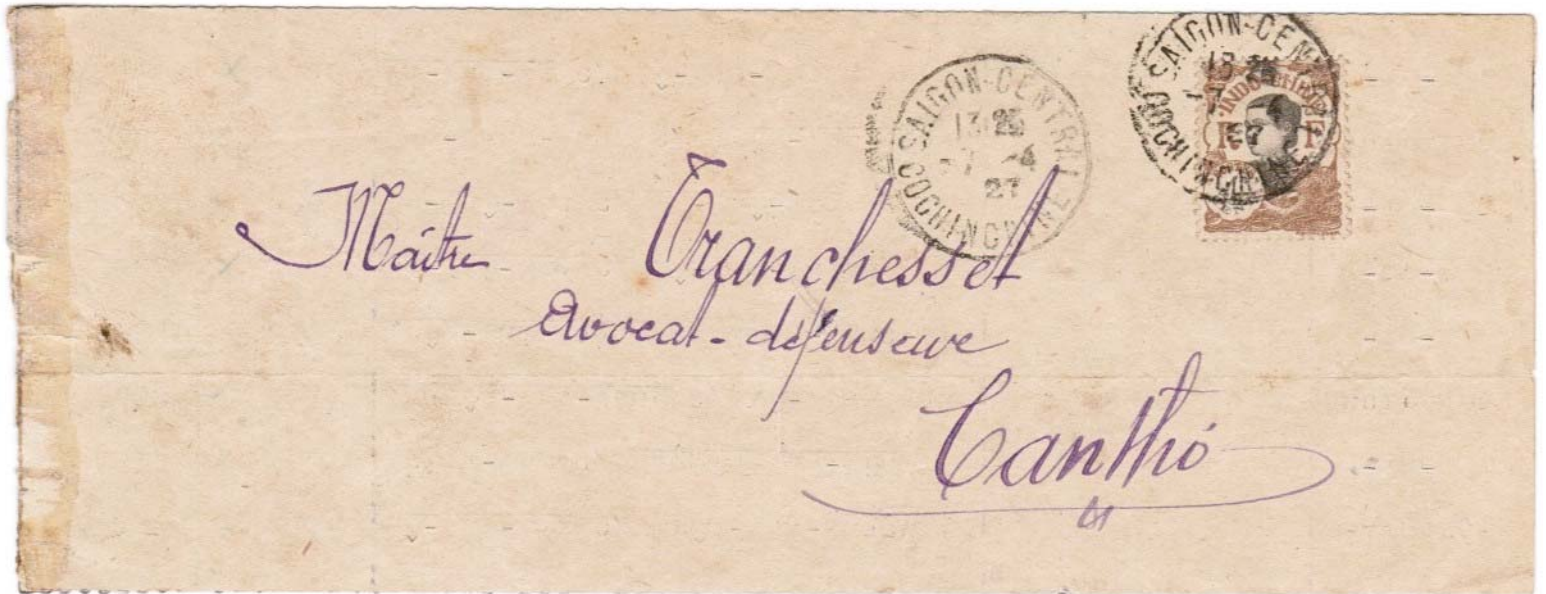 SAIGON-CENTRAL
13 25
-7 -4
27
COCHINCHINE
SAIGON-CENTRAL
27
COCHINCHINE
INDO-CHINE
Maître Tranchesset
Avocat-défenseur
Canthó